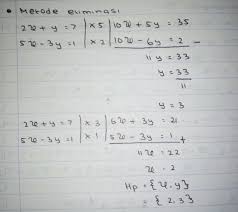 • Metode eliminasi
2x + y = 7 | x 5 | 10x + 5y = 35
5x - 3y = 1 | x 2 | 10x - 6y = 2 -
11y = 33
y = 33
11
y = 3
2x + y = 7 | x 3 | 6x + 3y = 21
5x - 3y = 1 | x 1 | 5x - 3y = 1 +
11x = 22
x = 2
Hp = {x, y}
= {2, 3}